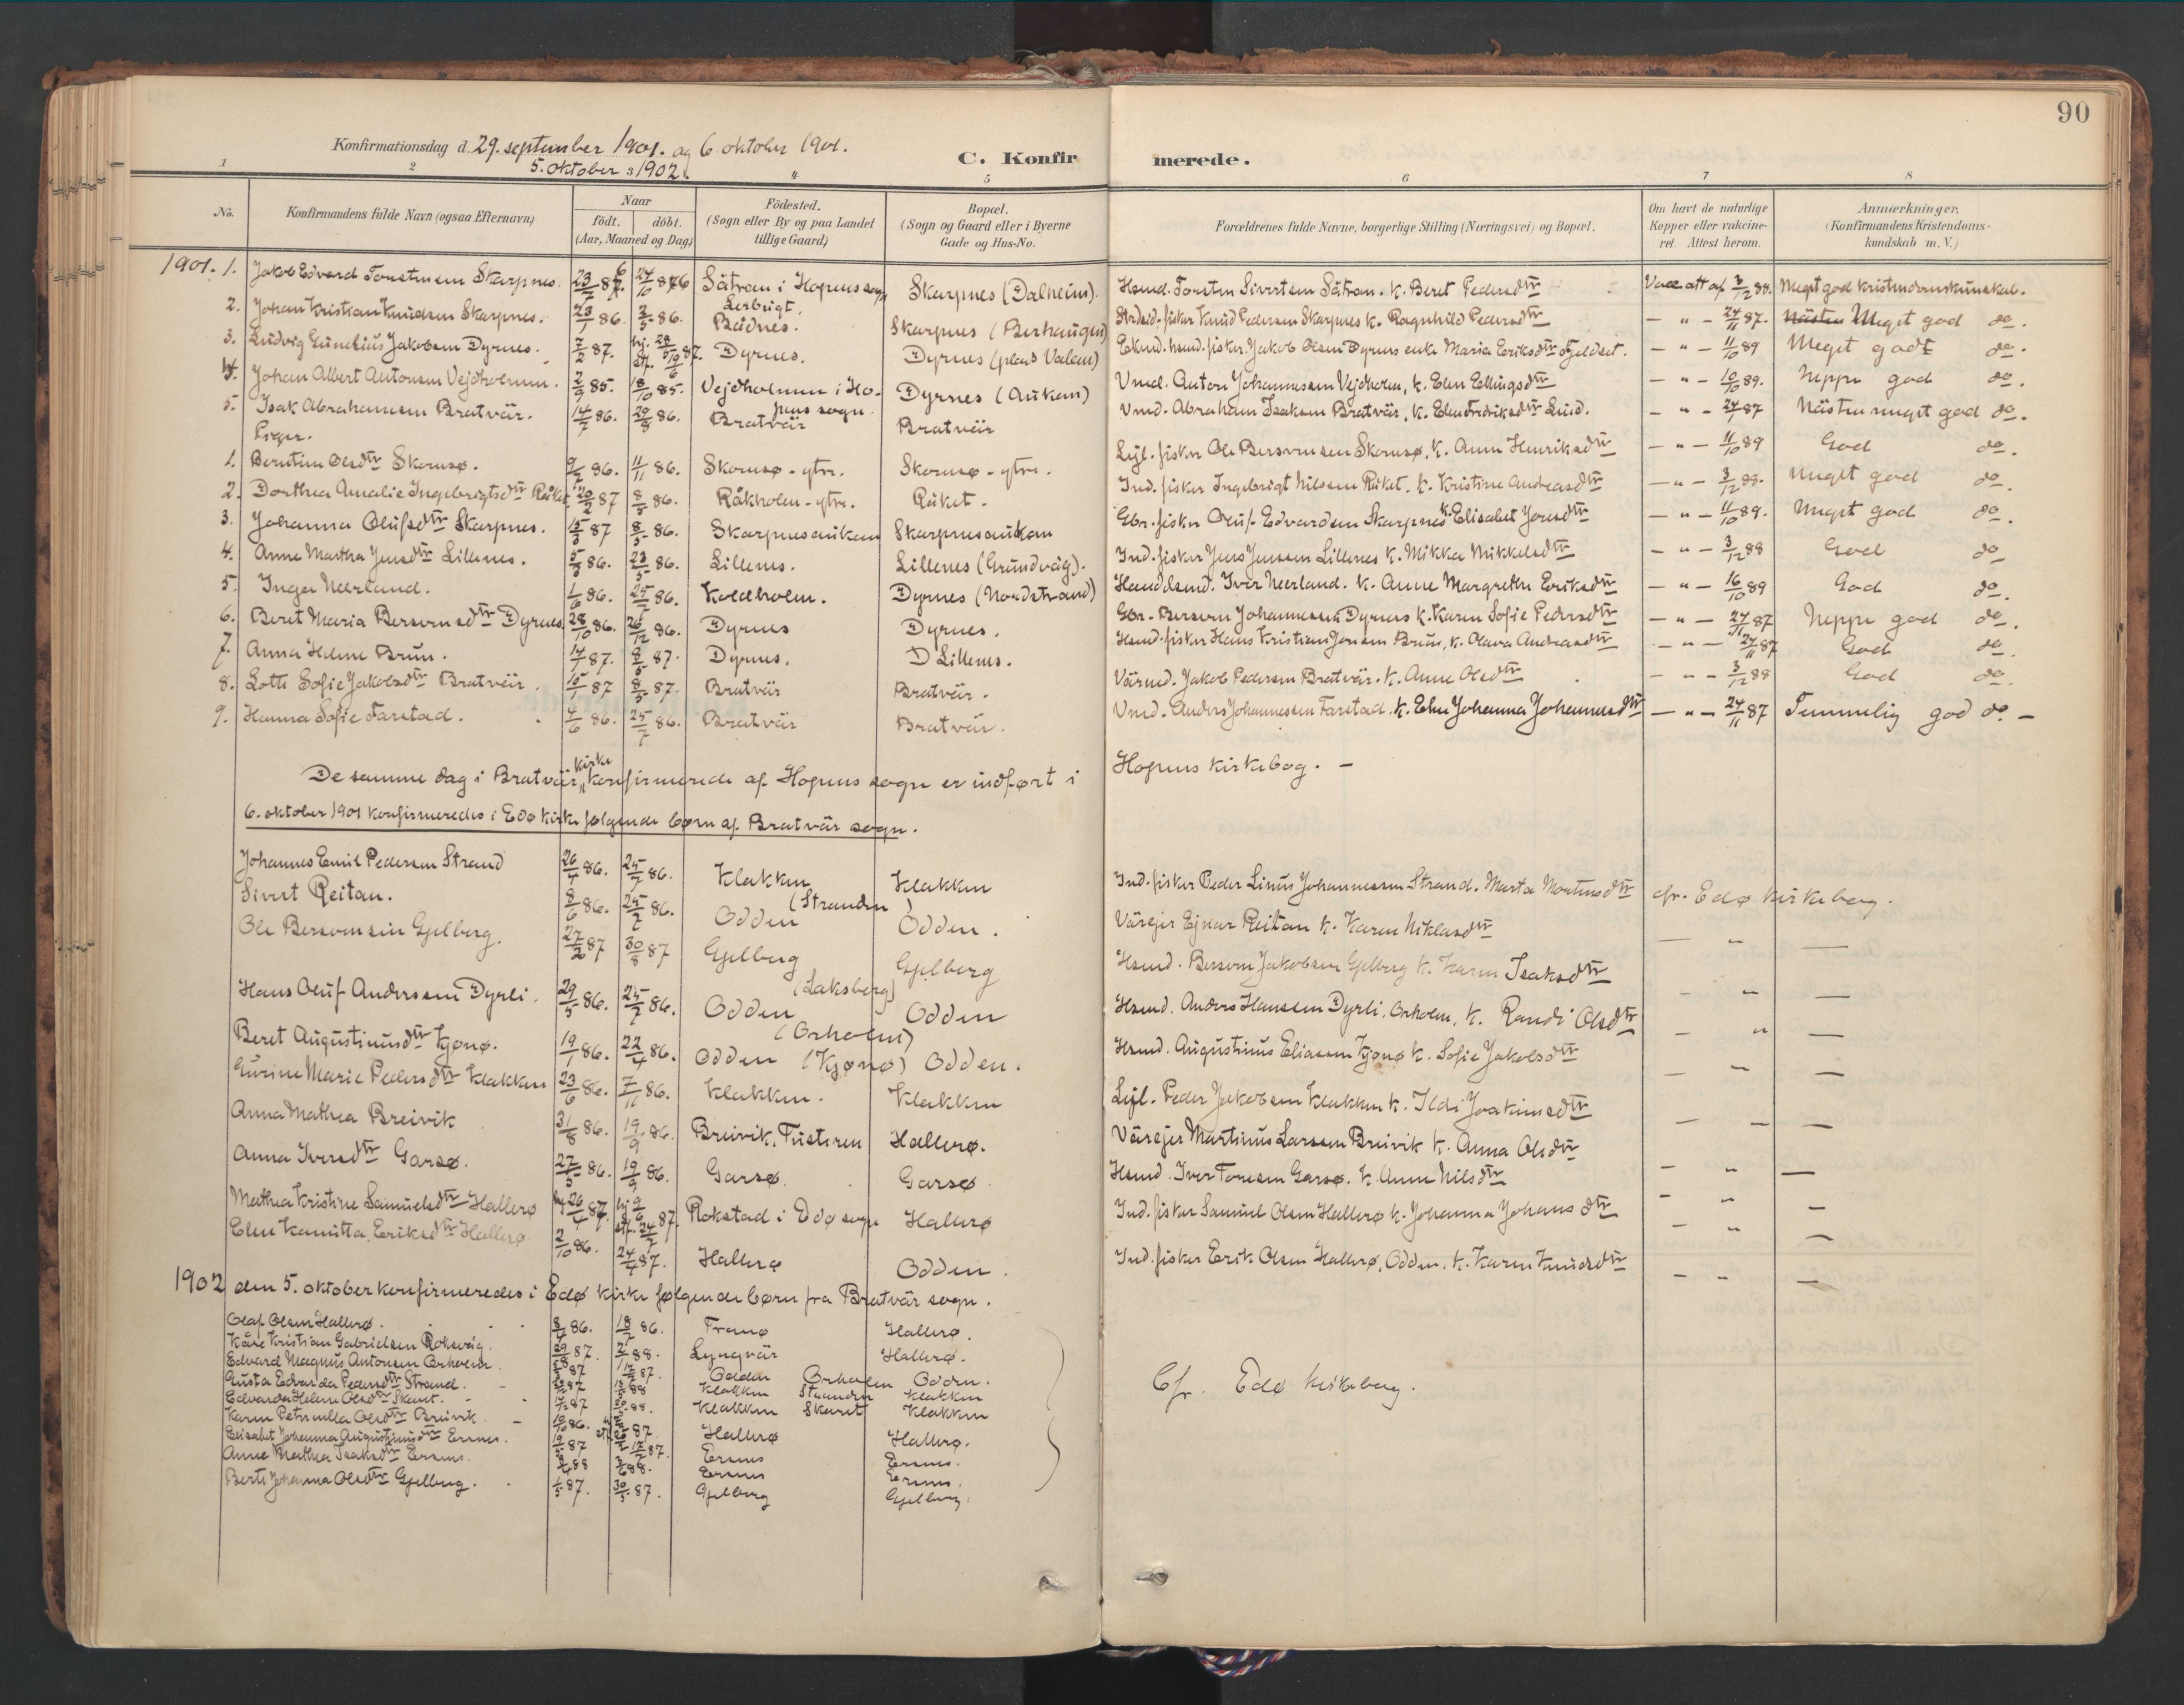 90
Konfirmationsdag d. 29. september 1901. og 6. oktober 1901.
5. oktober 1902.
C. Konfirmerede.
1 2 3 4 5 6 7 8
No. Konfirmandens fulde Navn (ogsaa Efternavn) Naar født. døbt. (Aar, Maaned og Dag) Fødested. (Sogn eller By og paa Landet tillige Gaard) Bopæl. (Sogn og Gaard eller i Byerne Gade og Hus-No. Forældrenes fulde Navne, borgerlige Stilling (Næringsvei) og Bopæl. Om havt de naturlige Kopper eller vakcineret. Attest herom. Anmærkninger. (Konfirmandens Kristendomskundskab m. V.)
1901. 1. Jakob Edvard Torstensen Skarpnes. Sätran i Hopens sogn Skarpnes (Dalheim). Hsmd. Torsten Sivertsen Sätran. k. Beret Pedersdtr Vacc att af 3/12 88. Meget god kristendomskunskab.
2. Johan Kristian Knudsen Skarpnes. 23/1 86. 2/5 86. Bådnes. Skarpnes (Berhaugen) fisker Knud Pedersen Skarpnes k. Ragnhild Pedersdtr — " — 24/11 87. Meget god do.
3. Ludvig Gunelius Jakobsen Dyrnes. 7/2 87. Dyrnes. Dyrnes (plads Valen) fisker. Jakob Olsen Dyrnes enke Maria Eriksdtr Fjeldset. — " — 11/10 89 Meget godt do.
4. Johan Albert Antonsen Vejdholmen. 2/9 85. 18/10 85. Vejdholmen i Hopens sogn. Dyrnes (Auken) Vmd. Anton Johannessen Vejdholm, k. Elen Ellingsdtr — " — 10/10 89. Neppe god do.
5. Isak Abrahamsen Bratvär. 14/7 86. 29/8 86. Bratvär Bratvär Vmd. Abraham Isaksen Bratvär, k. Elen Fredriksdtr Lund. — " — 24/11 87 Nästen meget god do.
Piger.
1. Berntine Olsdtr Skornsø. 9/7 86. 11/11 86. Skornsø - ytre. Skornsø - ytre. Lejl. fisker Ole Bersvensen Skornsø, k. Anne Henriksdtr — " — 11/10 89 God do.
2. Dorthea Amalie Ingebrigtsdtr Råket 20/2 87 8/5 86. Råkholm - ytre. Råket. Ind. fisker Ingebrigt Nilsen Råket. k. Kristine Andreasdtr — " — 3/12 88. Meget god do.
3. Johanna Olufsdtr Skarpnes. 15/3 87 8/5 86. Skarpnesauken Skarpnesauken Gbr. fisker Oluf Edvardsen Skarpnes k. Elisabet Jonsdtr — " — 11/10 89. Meget god do.
4. Anne Martha Jensdtr Lillenes. 5/3 86. 23/5 86. Lillenes. Lillenes (Grundvåg). Ind. fisker Jens Jensen Lillenes k. Mikka Mikkelsdtr — " — 3/12 88 God do
5. Inga Neerland. 1/6 86. 25/7 86. Koldholm. Dyrnes (Nordstrand) Handelsmd. Iver Neerland. k. Anne Margrethe Eriksdtr — " — 16/10 89 God do.
6. Beret Maria Bersvensdtr Dyrnes. 28/10 86. 26/12 86. Dyrnes Dyrnes. Gbr. Bersven Johannessen Dyrnes k. Karen Sofie Pedersdtr — " — 24/11 87 Neppe god do.
7. Anna Helene Brun. 14/1 87. 8/5 87. Dyrnes. Lillenes. Hsmd. fisker Hans Kristian Jensen Brun, k. Olava Andreasdtr — " — 24/11 87 God do.
8. Lotte Sofie Jakobsdtr Bratvär. 10/1 87 8/5 87. Bratvär Bratvär. Värmd. Jakob Pedersen Bratvär. k. Anne Olsdtr — " — 3/12 88 God do.
9. Hanna Sofie Farstad. 4/6 86. 25/7 86. Bratvär Bratvär. Vmd. Anders Johannessen Farstad. k. Elen Johanna Johannesdtr — " — 24/11 87 Temmelig god do. —
De samme dag i Bratvär kirke konfirmerede af Hopens sogn er indført i Hopens kirkebog. —
6. oktober 1901 konfirmeredes i Edø kirke følgende børn af Bratvär sogn.
Johannes Emil Pedersen Strand 26/4 86. 25/7 86. Klakken (Stranden) Klakken Ind. fisker Peder Linus Johannessen Strand. Marta Mortensdtr cfr. Edø kirkebog.
Sivert Reitan. 8/6 86. 25/7 86. Odden Odden. Värejer Ejnar Reitan k. Karen Niklasdtr — " —
Ole Bersvensen Gjelberg. 27/2 87 30/8 87 Gjelberg (Laksberg) Gjelberg Hsmd. Bersven Jakobsen Gjelberg k. Karen Isaksdtr — " —
Hans Oluf Anderssen Dyrli. 29/5 86. 25/7 86. Odden (Orholm) Odden Hsmd. Anders Hanssen Dyrli, Orholm, k. Randi Olsdtr — " —
Beret Augustinusdtr Kjønø. 19/1 86. 22/4 86. Odden (Kjønø) Odden. Hsmd. Augustinus Eliassen Kjønø k. Sofie Jakobsdtr — " —
Gurine Marie Pedersdtr Klakken 23/6 86. 7/11 86. Klakken. Klakken Lejl. Peder Jakobsen Klakken k. Ildi Joakimsdtr — " —
Anna Mathea Breivik 31/8 86. 19/9 86. Breivik, Tusteren Hallerø. Värejer Martinus Larssen Breivik k. Anna Olsdtr — " —
Anna Iversdtr Garsø. 27/5 86. 19/9 86. Garsø. Garsø. Hsmd. Iver Toresen Garsø. k. Anne Nilsdtr — " —
Mathea Kristine Samuelsdtr Hallerø 26/4 87. Rokstad i Edø sogn Hallerø Ind. fisker Samuel Olsen Hallerø k. Johanna Johansdtr — " —
Elen Kamitta Eriksdtr Hallerø 2/10 86. 24/4 87. Hallerø Odden. Ind. fisker Erik Olsen Hallerø, Odden, k. Karen Knudsdtr — " —
1902 den 5. oktober konfirmeredes i Edø kirke følgende børn fra Bratvär sogn.
Olaf Olsen Hallerø. 86. 18/7 86. Tranø Hallerø.
Kåre Kristian Gabrielsen Roksvåg. 87. 88. Lyngvär Hallerø.
Edvard Magnus Antonsen Orholm. 87 87. Odden Orholm Odden.
Austa Edvarda Pedersdtr Strand. 87 88 Klakken Stranden Klakken
Edvarda Helene Olsdtr Skaret. 87 88. Klakken Skaret Klakken
Karen Peternella Olsdtr Breivik. 86. 87. Hallerø Hallerø.
Elisabet Johanna Augustinusdtr Ersnes. 87 87. Ersnes Ersnes.
Anne Mathea Isaksdtr Ersnes. 88 88. Ersnes Ersnes.
Berte Johanna Olsdtr Gjelberg. 1/5 87. 30/5 87. Gjelberg Gjelberg.
Cfr. Edø kirkebog.